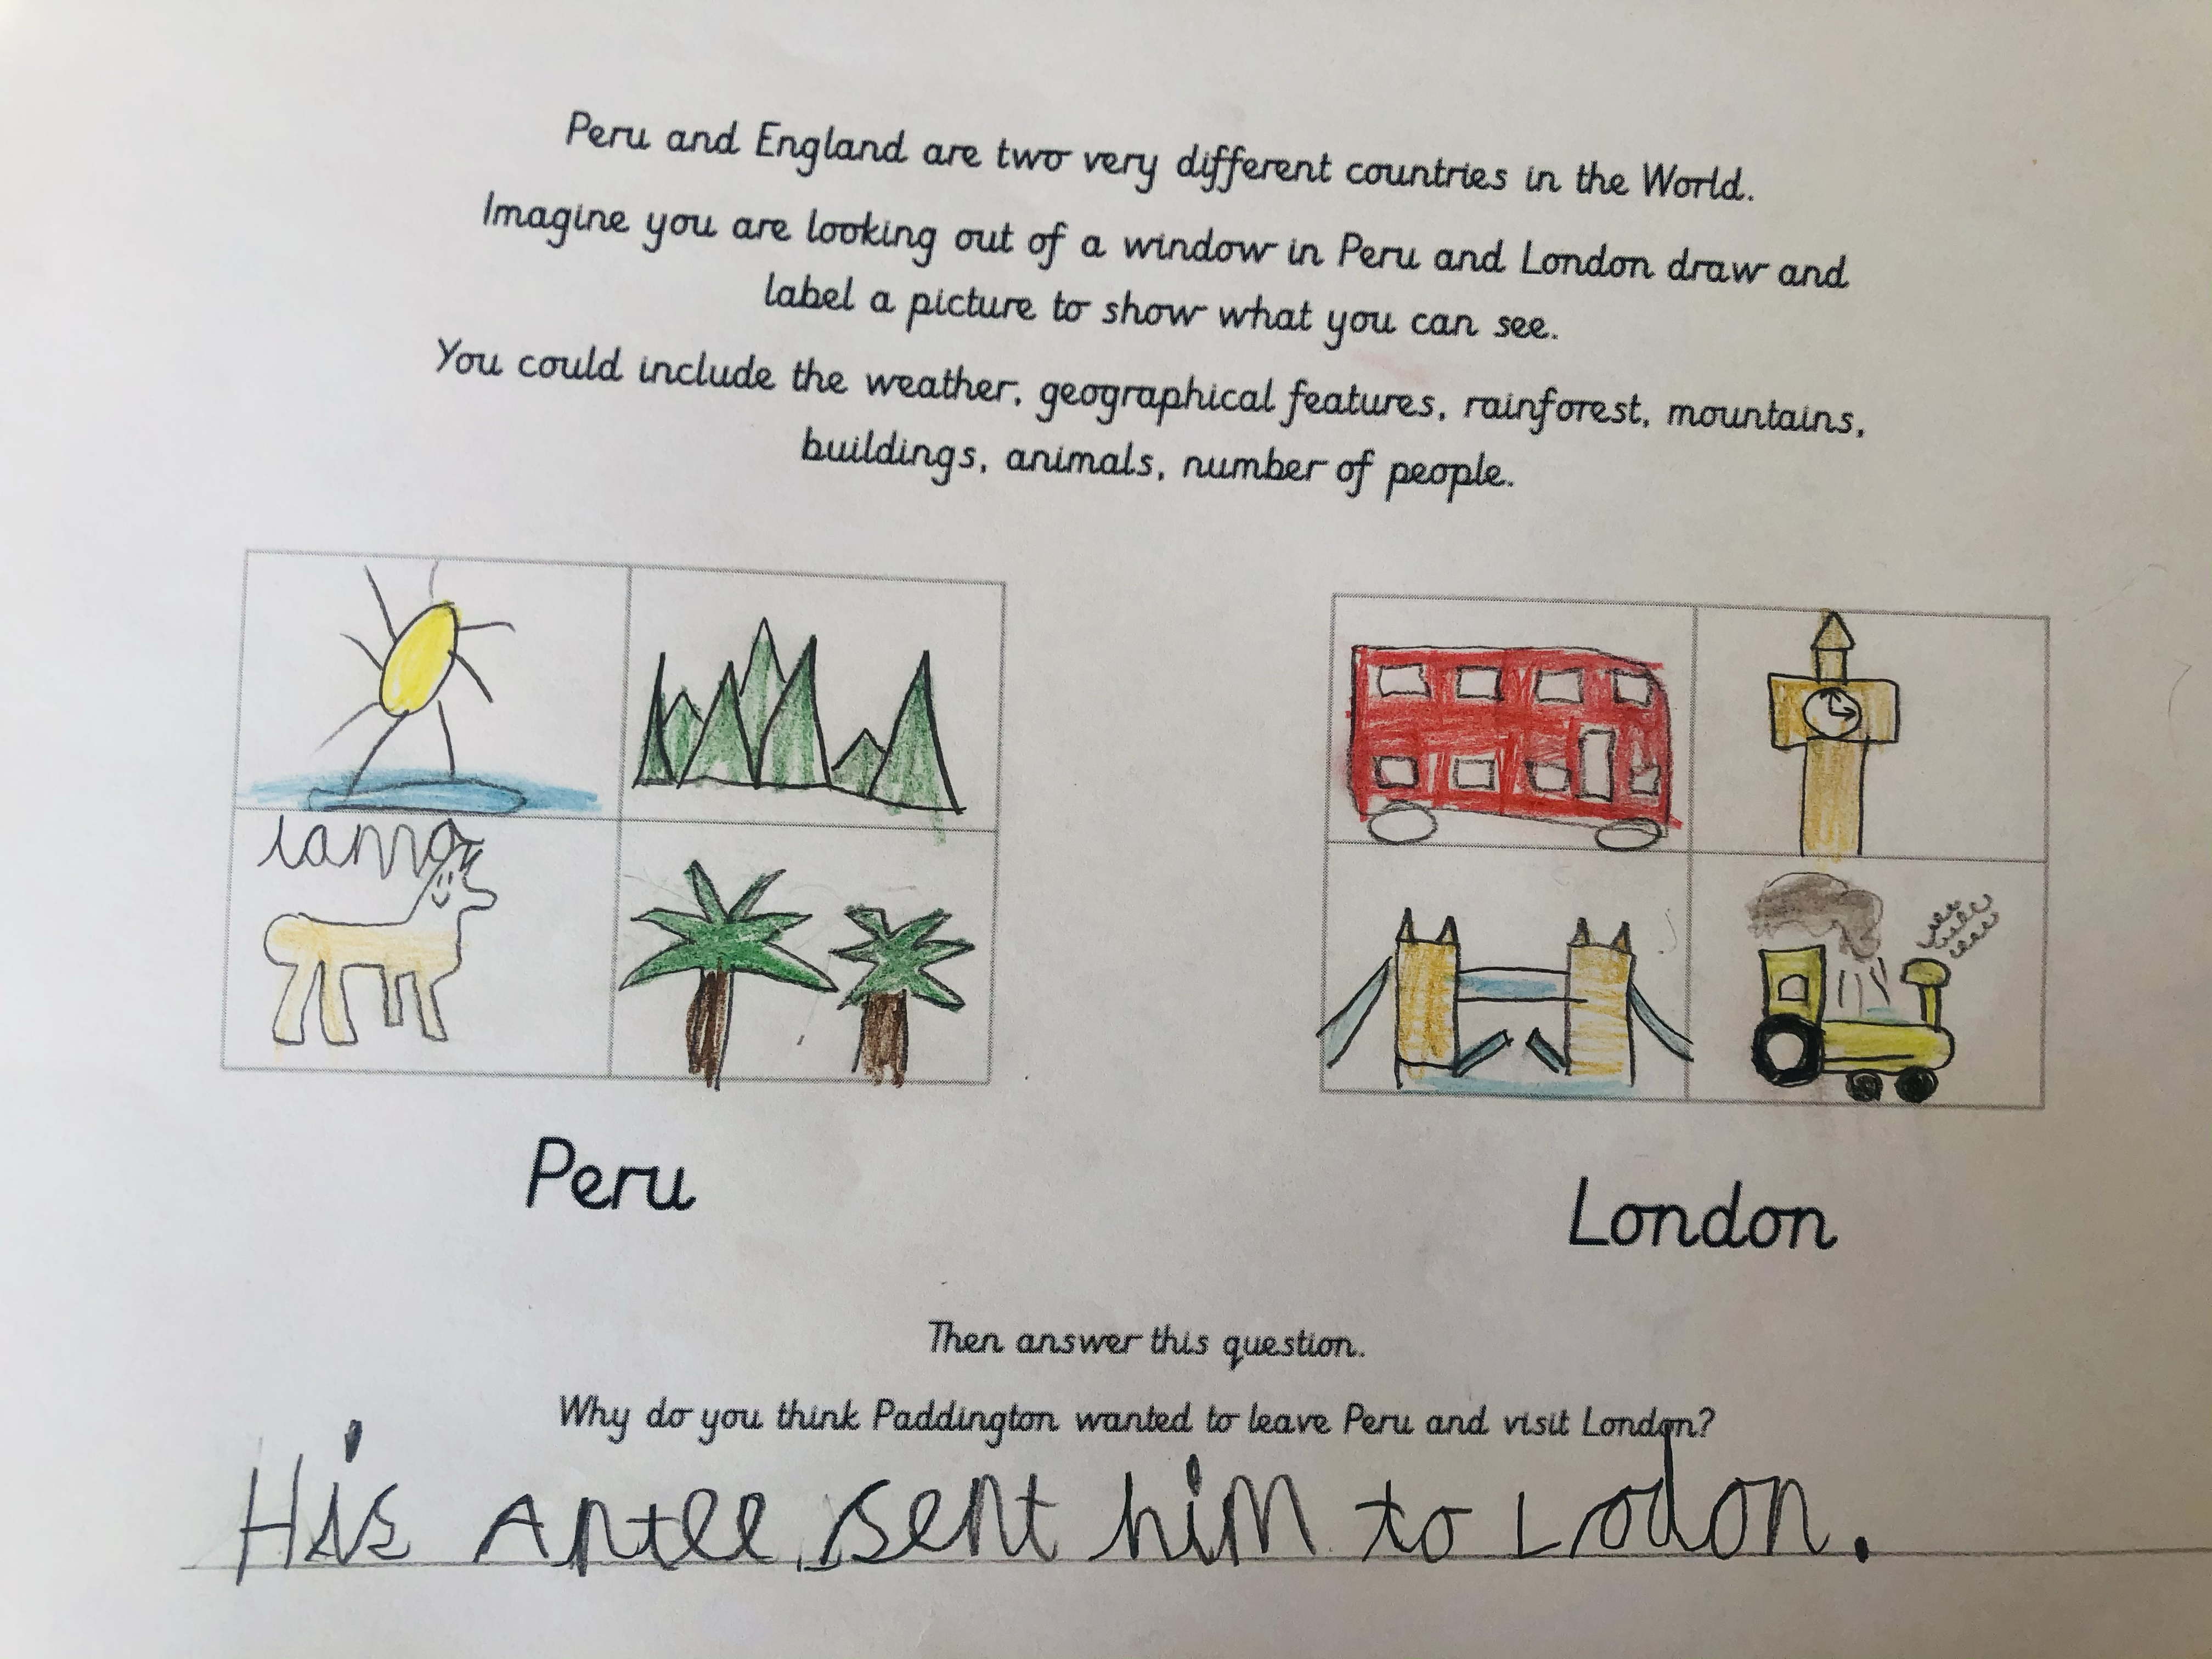 Peru and England are two very different countries in the World.
Imagine you are looking out of a window in Peru and London draw and
label a picture to show what you can see.
You could include the weather, geographical features, rainforest, mountains,
buildings, animals, number of people.
lama
Peru
London
Then answer this question.
Why do you think Paddington wanted to leave Peru and visit London?
His Antee sent him to Lodon.